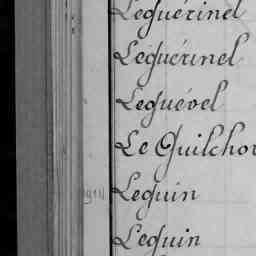 Leguérinel
Leguérinel
Leguével
Le Guilchou
1914 Lequin
Lequin